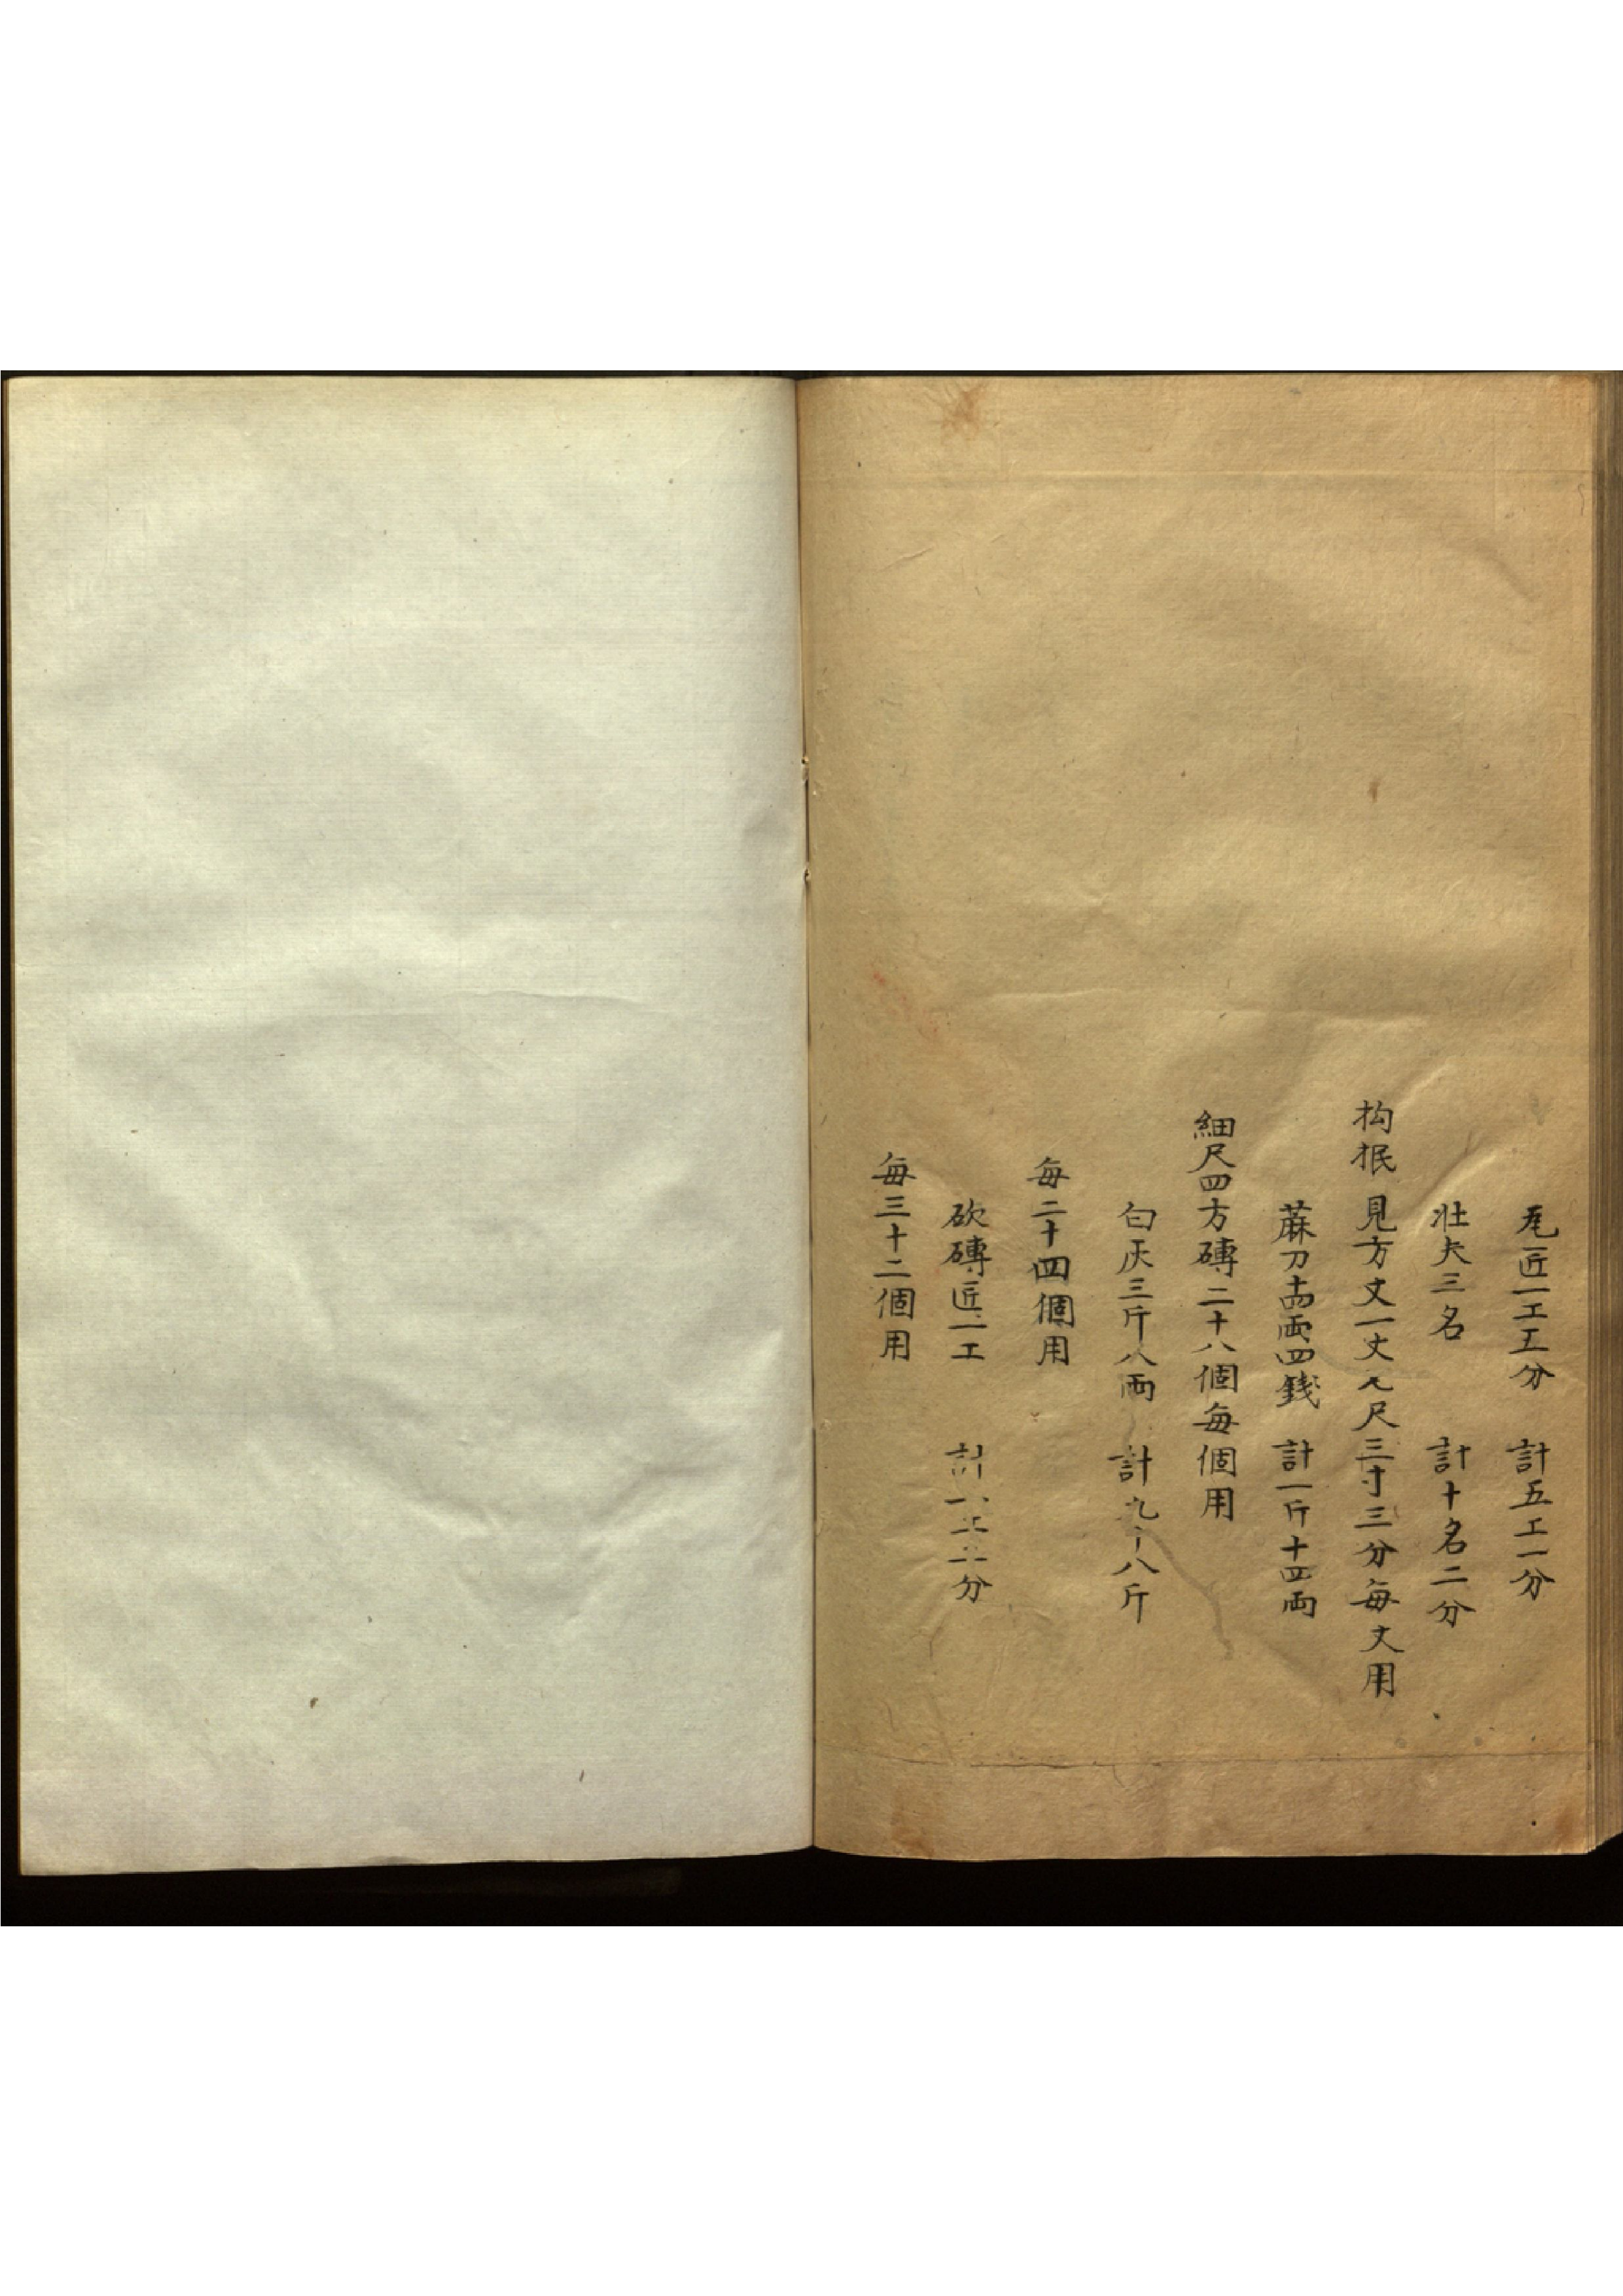 瓦匠一工五分　計五工一分
壯夫三名　計十名二分
抅抿　見方丈一丈九尺三寸三分每丈用
蔴刀十四両四錢　計一斤十四両
細尺四方磚二十八個每個用
白灰三斤八両　計九十八斤
每二十四個用
砍磚匠一工　計一工二分
每三十二個用